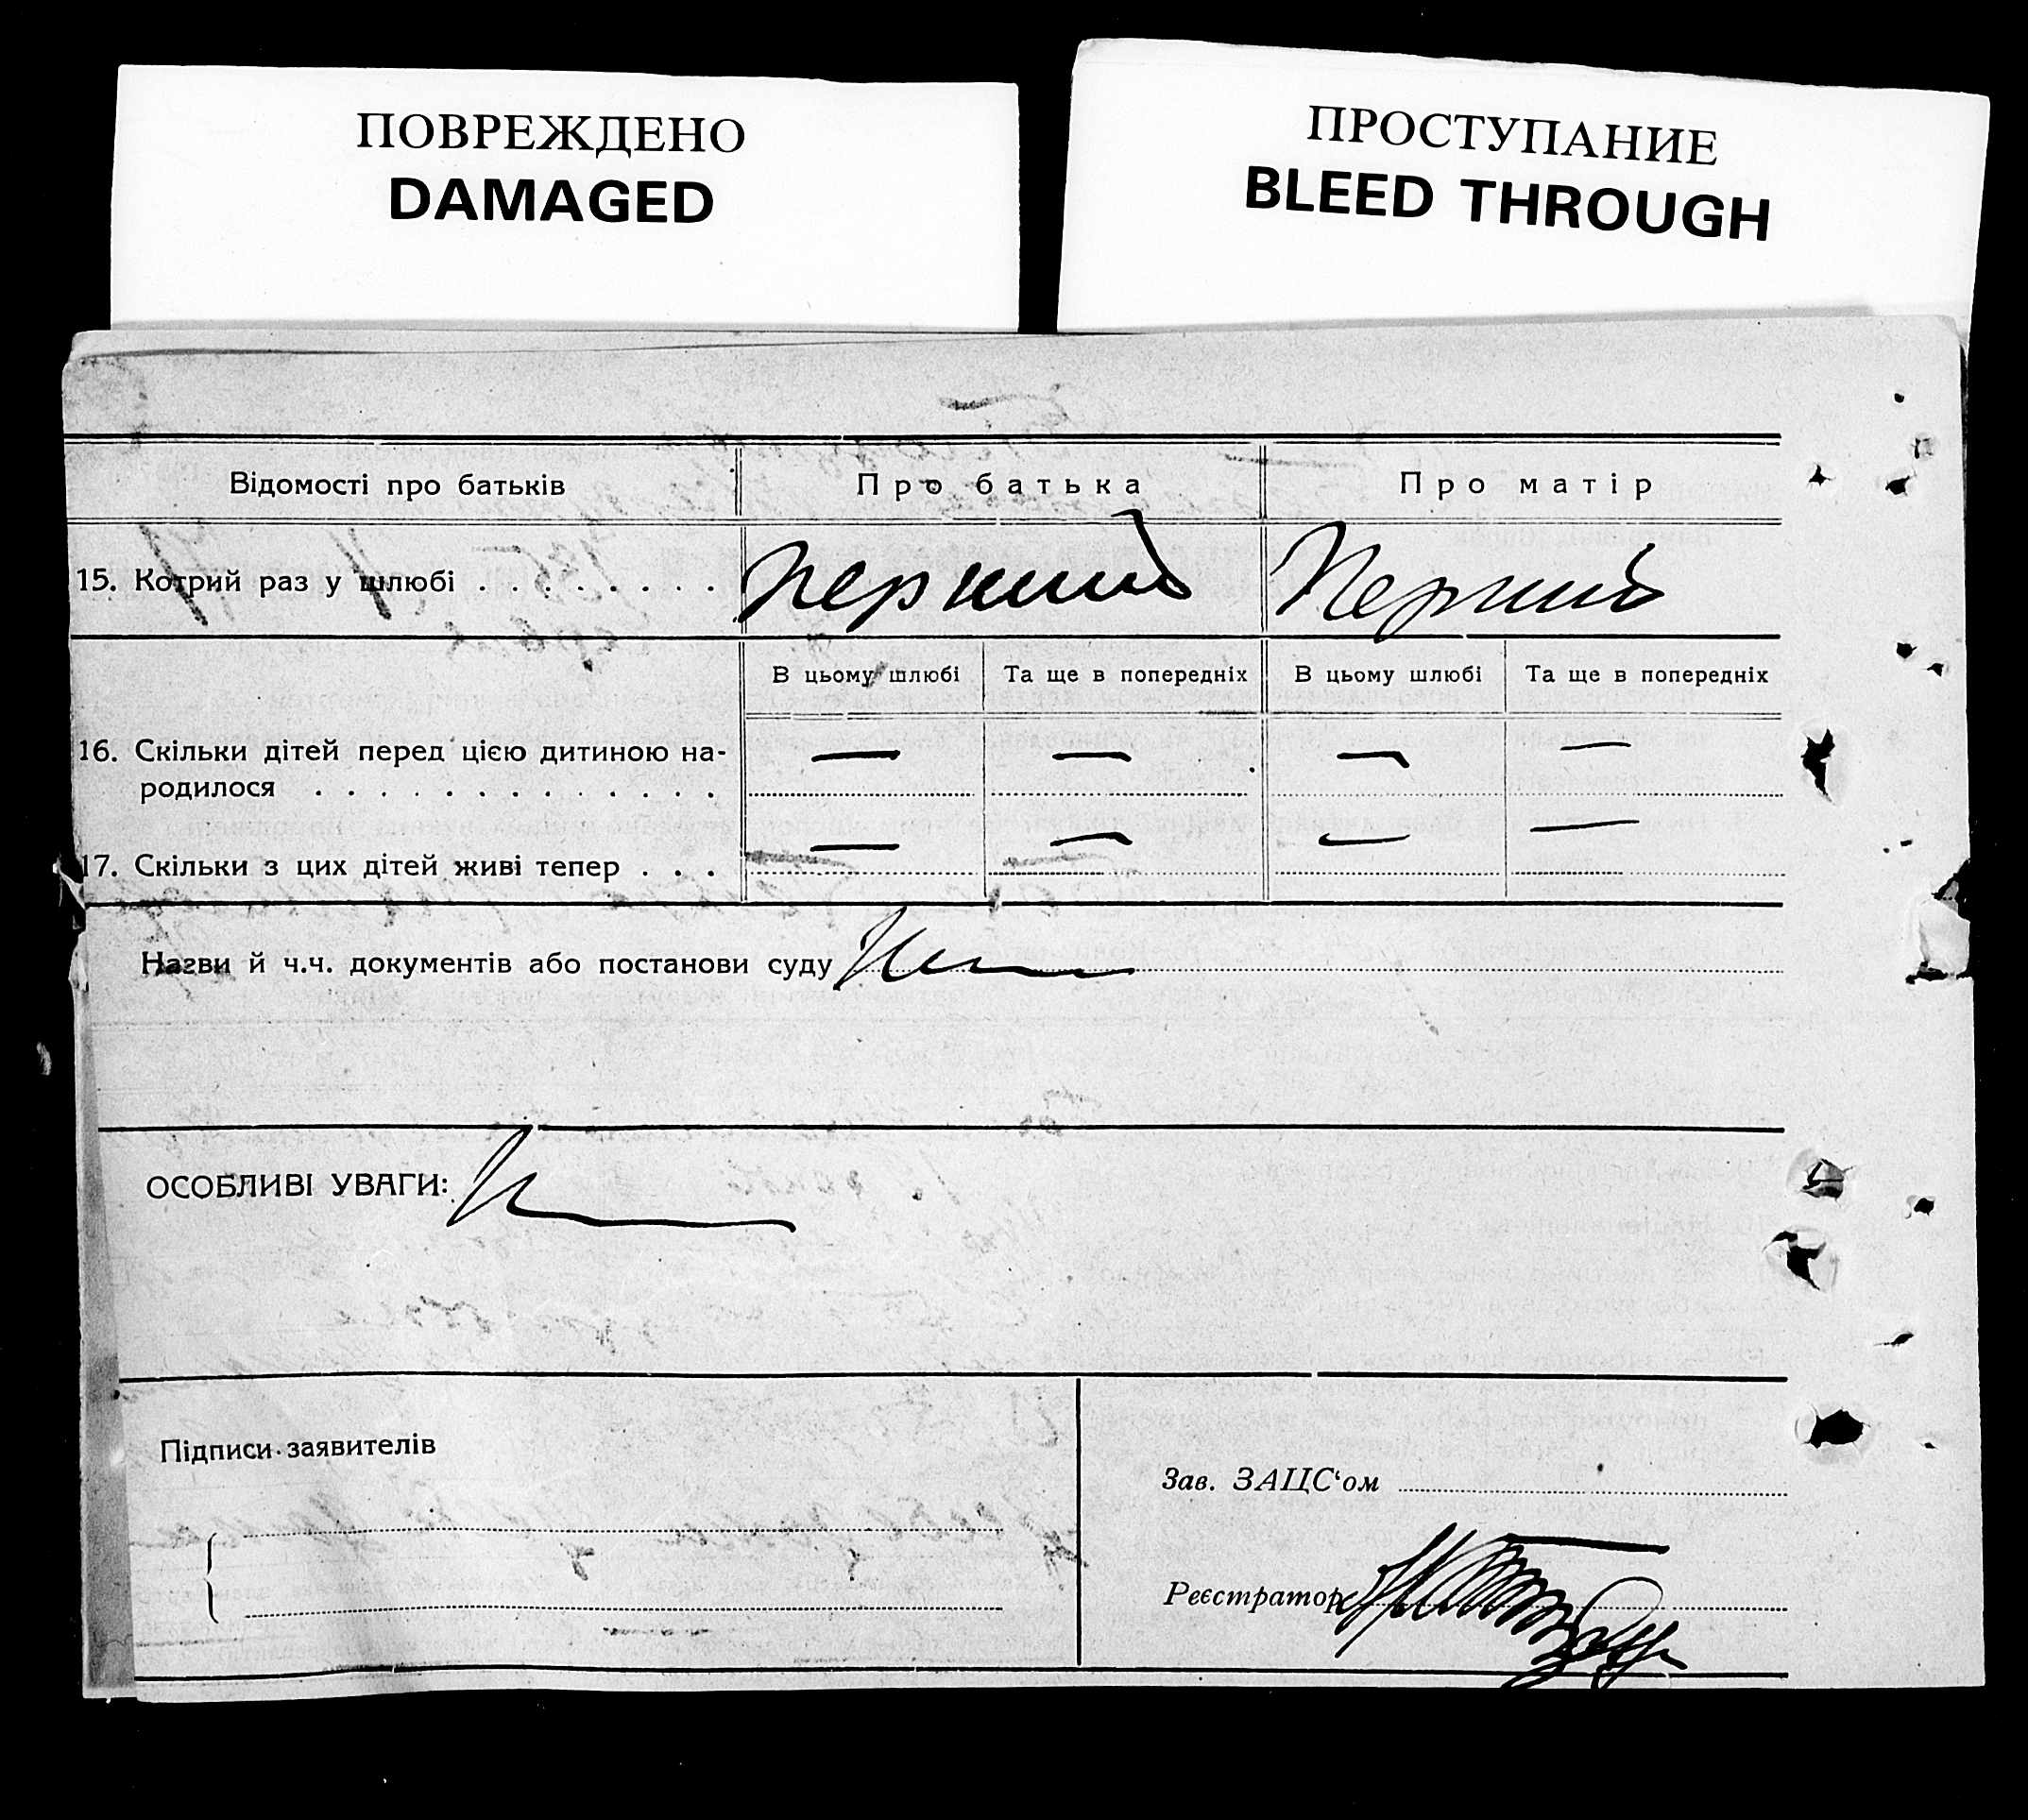 ПОВРЕЖДЕНО
DAMAGED
ПРОСТУПАНИЕ
BLEED THROUGH
Відомості про батьків
Про батька
Про матір
15. Котрий раз у шлюбі . . . . . . . .
перший
Перший
В цьому шлюбі
Та ще в попередніх
В цьому шлюбі
Та ще в попередніх
16. Скільки дітей перед цією дитиною на-
родилося . . . . . . . . . . . . .
— — — —
17. Скільки з цих дітей живі тепер . . .
— — — —
Назви й ч.ч. документів або постанови суду
ОСОБЛИВІ УВАГИ:
Підписи заявителів
Зав. ЗАЦС‘ом
Реєстратор